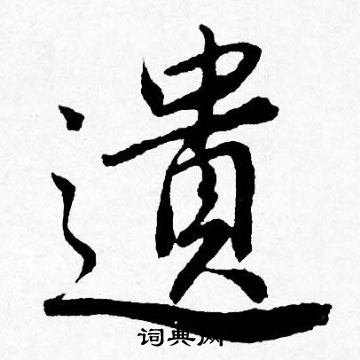 遺
词典网